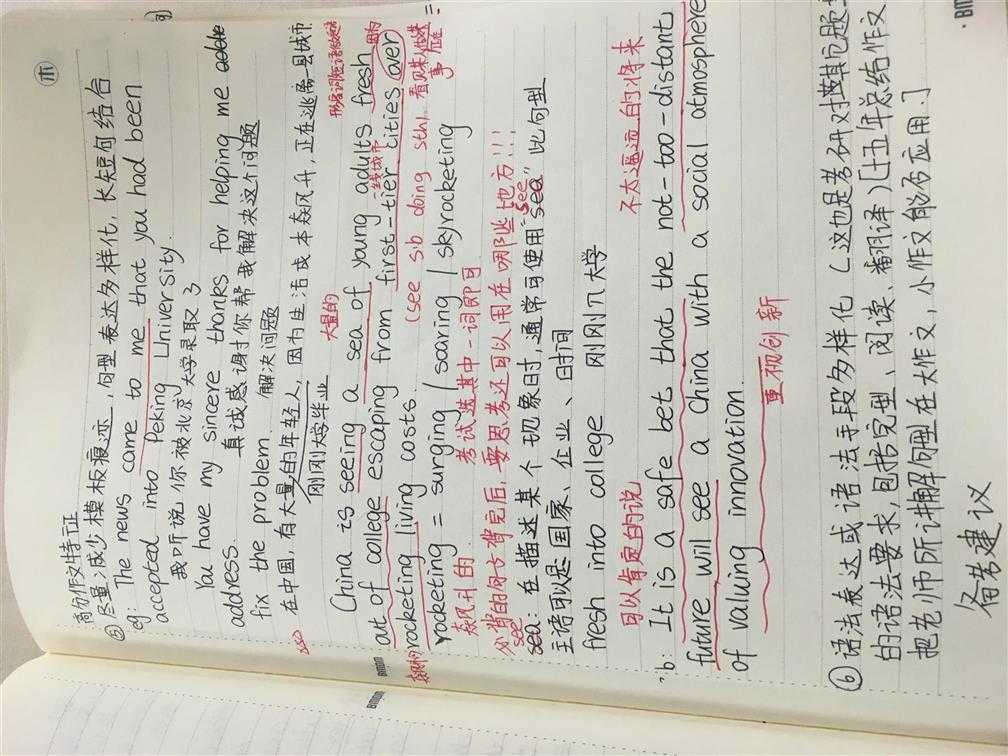 高分作文特征
⑤ 尽量减少模板痕迹，句型表达多样化，长短句结合
eg: The news came to me that you had been
accepted into Peking University.
我听说你被北京大学录取了
You have my sincere thanks for helping me
address. 真诚感谢你帮我解决这个问题
fix the problem 解决问题
在中国，有大量的年轻人，因为生活成本飙升，正在逃离一县城市
刚刚大学毕业 大量的
China is seeing a sea of young adults fresh 因为
out of college escaping from first-tier cities over
一线城市
rocketing living costs. (see s.b doing sth. 看见某人做某事
rocketing = surging / soaring / skyrocketing =
飙升的 考试选其中一词即可
要思考还可以用在哪些地方!!!
see
sea: 在描述某个现象时，通常可使用"sea"此句型
see
主语可以是国家、企业、时间
fresh into college 刚刚入大学
可以肯定的说 不太遥远的将来
b: It is a safe bet that the not-too-distant
future will see a China with a social atmosphere
of valuing innovation
重视创新
⑥ 语法表达或语法手段多样化 (这也是考研对其他题型
的语法要求，包括完型、阅读、翻译) [十五年总结作文
把老师所讲解句型在大作文，小作文能否应用.]
备考建议
BIMON